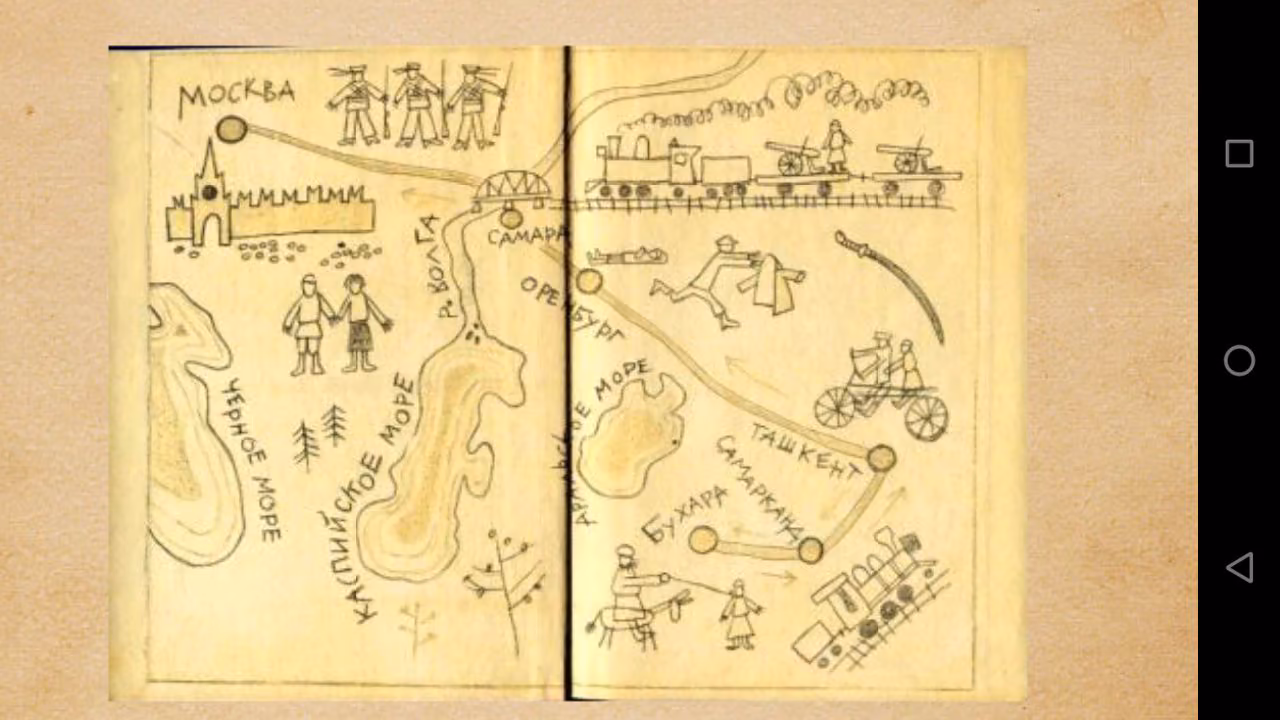 МОСКВА
Р. ВОЛГА
САМАРА
ОРЕНБУРГ
ЧЕРНОЕ МОРЕ
КАСПИЙСКОЕ МОРЕ
АРАЛЬСКОЕ МОРЕ
ТАШКЕНТ
САМАРКАНД
БУХАРА